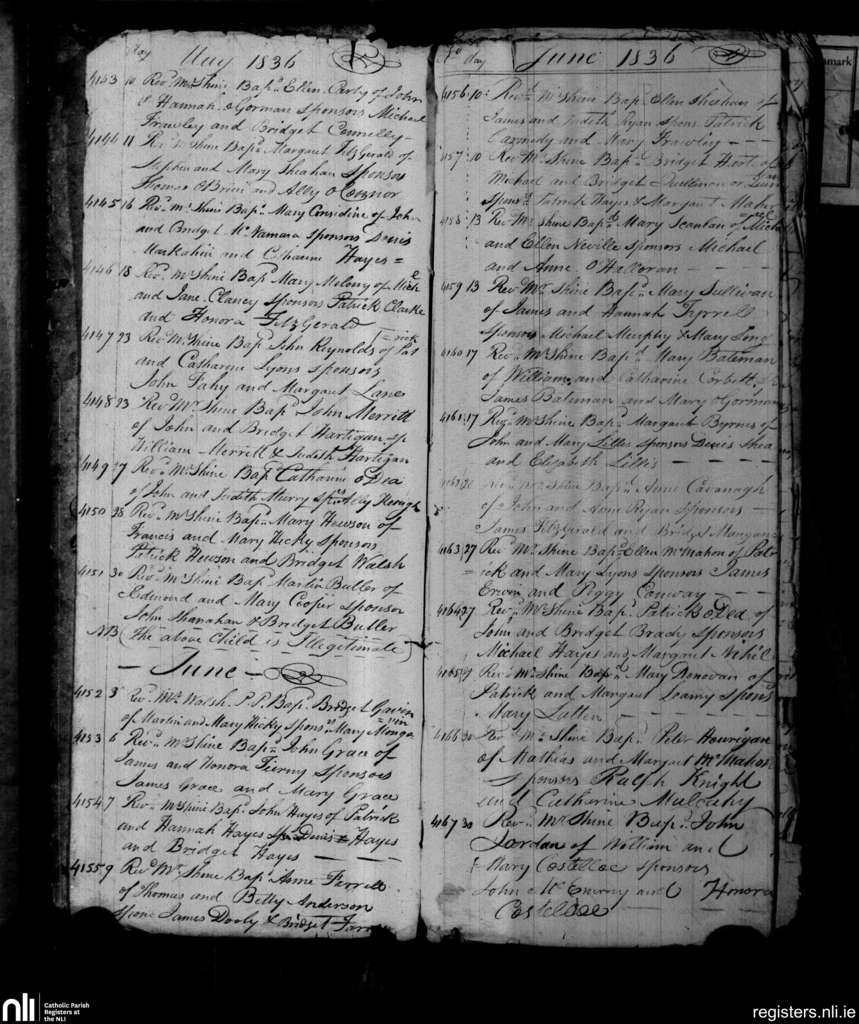 day May 1836
4143 10 Revd Mr Shine Bapd Ellen Carby of John
& Hannah O Gorman Sponsors Michael
Frawley and Bridget Connelly
4144 11 Revd Mr Shine Bapd Margaret FitzGerald of
Stephen and Mary Sheahan Sponsors
Thomas O Brien and Abby O Connor
4145 16 Revd Mr Shine Bapd Mary Considine of John
and Bridget McNamara Sponsors Denis
and Catharine Hayes =
4146 18 Revd Mr Shine Bapd Mary Melony of Michl
and Jane Clancy Sponsors Patrick Clarke
and Honora FitzGerald
4147 23 Revd Mr Shine Bapd John Reynolds of Pat
= rick
and Catharine Lyons sponsors
John Fahy and Margaret Lanes
4148 23 Revd Mr Shine Bapd John Merritt
of John and Bridget Hartigan sp
William Merritt & Judith Hartigan
4149 27 Revd Mr Shine Bapd Catharine O Dea
of John and Judith Murry Keough
4150 28 Revd Mr Shine Bapd Mary Hewson of
Francis and Mary Hicky Sponsors
Patrick Hewson and Bridget Walsh
4151 30 Revd Mr Shine Bapd Martin Butler of
Redmond and Mary Cooper Sponsor
John Shanahan & Bridget Butler
NB (The above Child is Illegitimate)
— June —
4152 3 Revd Mr Walsh P.P. Bapd Bridget Gavin
of Martin and Mary Hicky Sponsr Mary Monga
= vin
4153 6 Revd Mr Shine Bapd John Grace of
James and Honora Tierny Sponsors
James Grace and Mary Grace
4154 7 Revd Mr Shine Bapd John Hayes of Patrick
and Hannah Hayes Spr Denis Hayes
and Bridget Hayes — — —
4155 9 Revd Mr Shine Bapd Anne Ferrell
of Thomas and Betty Anderson
Spons James Dooly & Bridget
day June 1836
4156 10 Revd Mr Shine Bapd Ellen Sheehan of
James and Judith Ryan Spons Patrick
Carmody and Mary Frawley — —
4157 10 Revd Mr Shine Bapd Bridget Hart of
Michael and Bridget Quillinan or
Spons Patrick Hayes & Margaret Maher
4158 13 Revd Mr Shine Bapd Mary Scanlan of Michl
and Ellen Neville sponsors Michael
and Anne O'Halloran — — —
4159 13 Revd Mr Shine Bapd Mary Sullivan
of James and Hannah Tyrrell
Sponsors Michael Murphy & Mary Long
4160 17 Revd Mr Shine Bapd Mary Bateman
of William and Catharine Corbett Sp
James Bateman and Mary Gorman
4161 17 Revd Mr Shine Bapd Margaret Byrnes of
John and Mary Lillis Sponsors Denis Shea
and Elizabeth Lillis — — —
Revd Mr Shine Bapd Anne Cavanagh
of John and Anne Ryan Sponsors —
James FitzGerald and Bridget Mangan
4163 27 Revd Mr Shine Bapd Ellen McMahon of Pat
= rick and Mary Lyons Sponsors James
and Peggy Conway — —
4164 27 Revd Mr Shine Bapd Patrick O Dea of
John and Bridget Brady Sponsors
Michael Hayes and Margaret
4165 29 Revd Mr Shine Bapd Mary Donovan of
Patrick and Margaret Leamy Sponsr
Mary Latten — — —
4166 30 Revd Mr Shine Bapd Peter Hourigan
of Mathias and Margaret McMahon
Sponsors Ralph Knight
and Catharine Mulcahy
4167 30 Revd Mr Shine Bapd John
Jordan of William and
Mary Costelloe Sponsors
John McEnerny and Honora
Costelloe — —
mark
nli Catholic Parish
Registers at
the NLI
registers.nli.ie